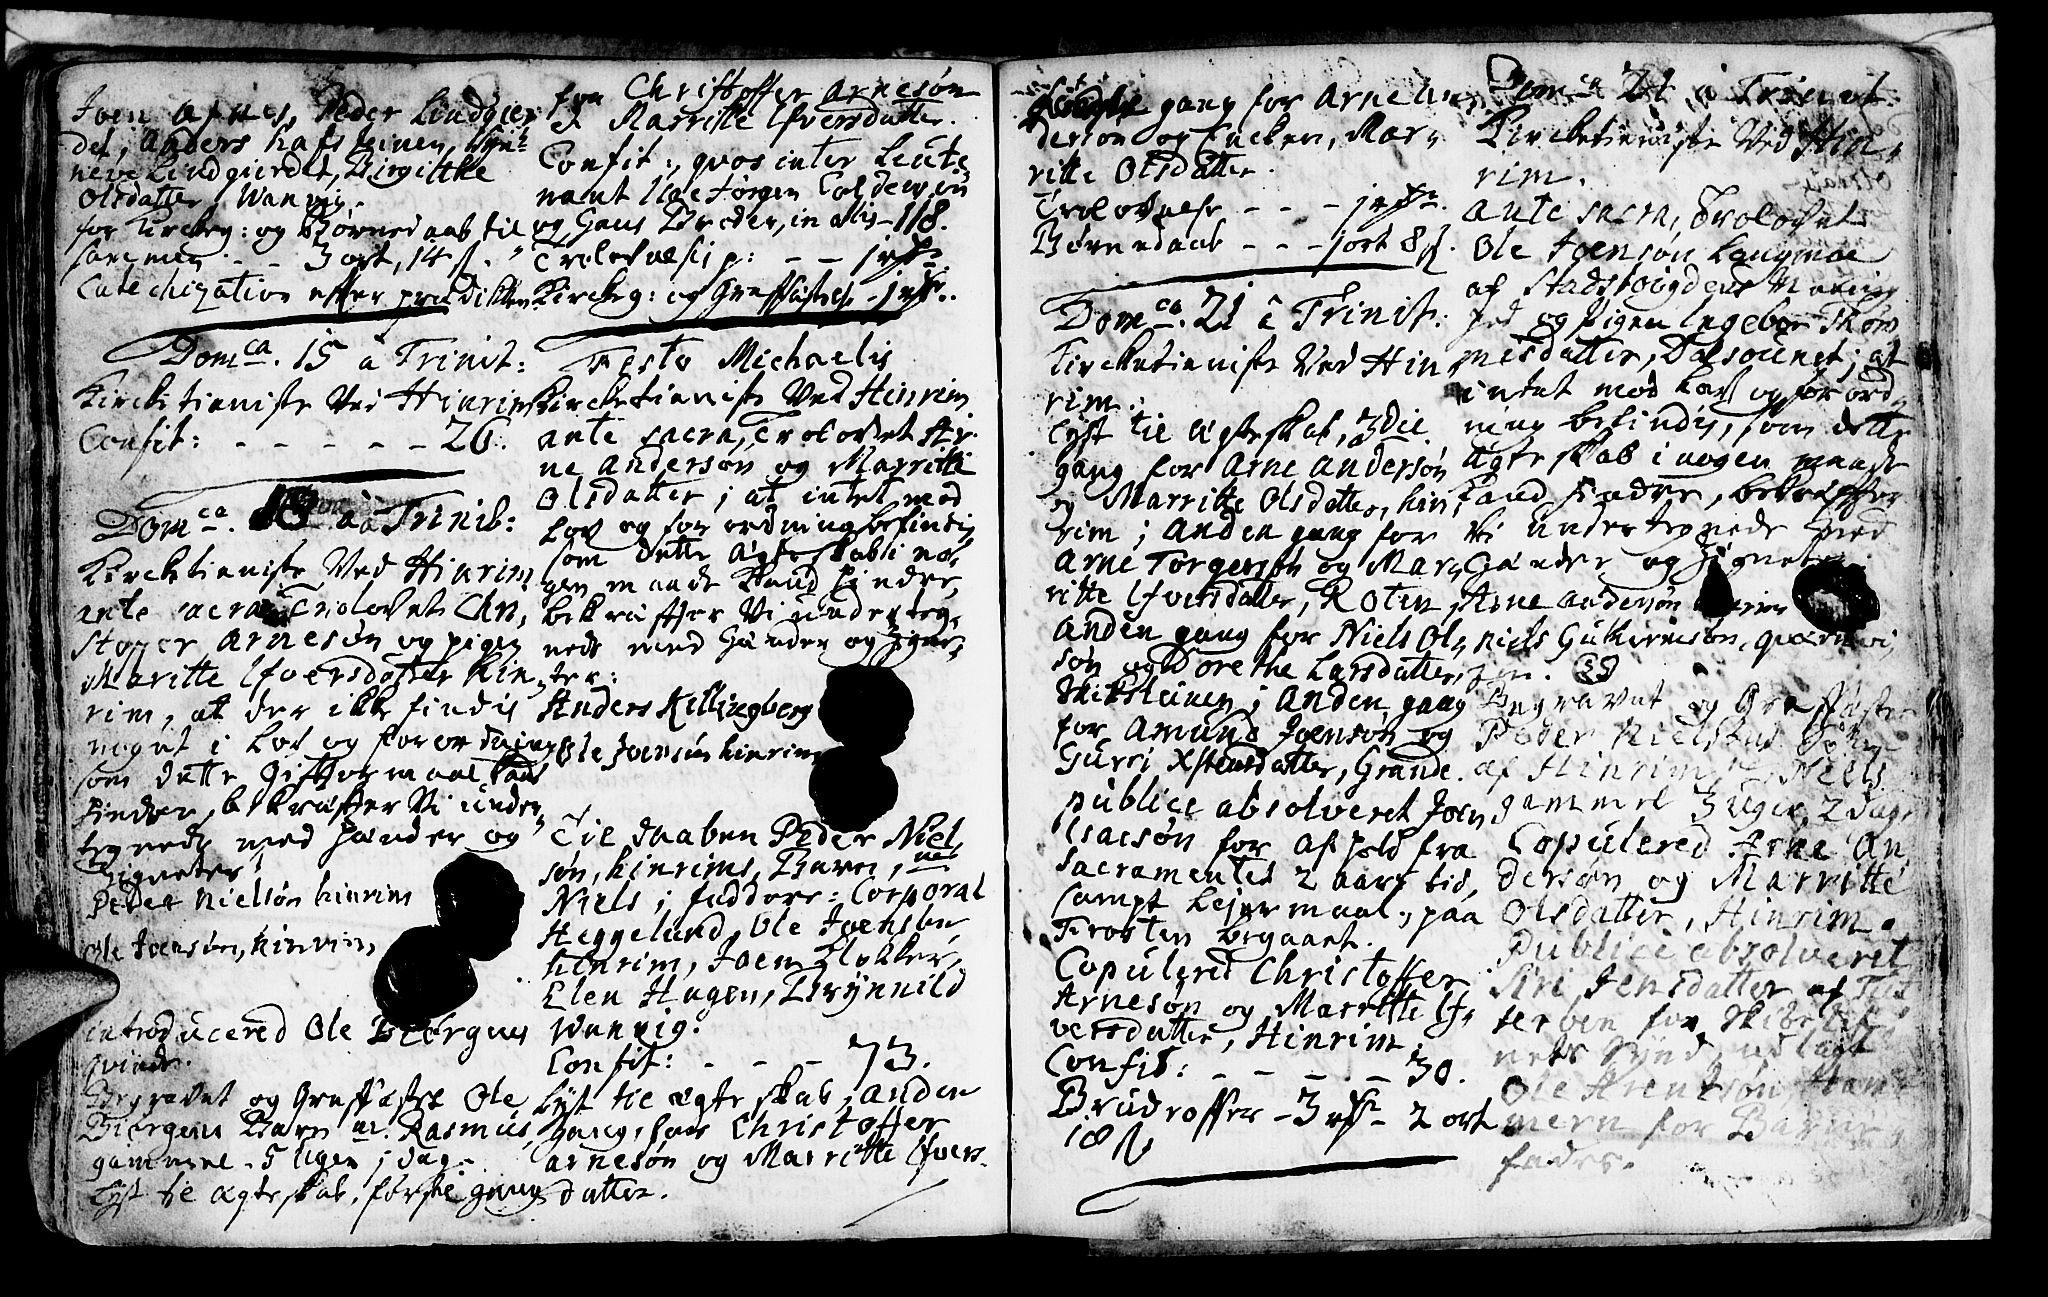 Joen Asnes, Peder Lindgier
det, Anders Hafsteinen,
neve Lindgierdet, Birgitthe
Olsdatter Wanvig.
for Kirckeg: og Børnedaab til
sammen - - 3 ort, 14 s.
Catechization efter prædikken
Domca. 15 a Trinit:
Kircketieniste Ved Hinrim
Confit: - - - - - 26.
Domca. a Trinit:
Kircketieniste Ved Hinrim
ante sacra Trolovet Chri,
stoffer Arnesøn og pigen
Maritte Ifversdatter Hin,
rim, at der ikke findis
nogut i Lov og forordning
som dette Gifftermaal kand
hindre, bekræfter Vi under,
tegnede med hænder og
Zigneter!
Peder Nielsøn hinrim
Ole Joensøn, hinrim,
introducered Ole Biørgens
qvinde.
Begravet og Græffæstet Ole
Biørgens Barn n. Rasmus,
gammel - 5 Uger j dag.
Lyst til ægteskab, første gang
for Christoffer Arnesøn
& Marritte Ifversdatter.
Confit:, qvos inter Leute
nant Ilde Jørgen Coldevin
og Hans Brøder, in alis - 118.
Trolovelsis p: - - 1 rdr
Kirckeg: og Græffæstelse - 1 rdr.
Festo Michaelis
Kircketieniste Ved Hinrim
ante sacra, Trolovet Ar,
ne Andersøn og Marritte
Olsdatter; at intet mod
Lov og for ordning befindis,
som dette Ægteskab i no,
gen maade kand hindre,
bekræffter Vi underteg,
nede med hænder og Zigne,
ter:
Anders Killingberg
Ole Joensøn hinrim
Til daaben Peder Niel,
søn, hinrims, Barn, nes
Niels; faddere: Corporal
Heggelund, Ole Joensøn
hinrim, Joen Klokker,
Elen Hagen, Brynnild
Wanvig.
Confit: - - - 73.
Lyst til ægteskab, anden
gang, for Christoffer
Arnesøn og Marritte Ifvers,
datter.
gang for Arne An,
dersøn og Encken, Mar,
ritte Olsdatter.
Trolovelse - - - 1 rdr.
Børnedaab - - - 1 ort 8 s.
Domca. 21 a Trinit:
Kircketieniste Ved Hin,
rim.
Lyst til ægteskab, 3die
gang for Arne Andersøn
og Marritte Olsdatter, hin,
rim; anden gang for
Arne Torgersøn og Mar,
ritte Ifversdatter, Roten,
Anden gang for Niels Ol,
søn og Dorethe Larsdatter,
Anden gang
for Amund Joensøn og
Gurri Xstensdatter, Grande.
publice absolveret Joen
Isacsøn for afhold fra
Sacramentet 2 aars tid,
sampt Lejermaal, paa
Frosten begaaet.
Copulered Christoffer
Arnesøn og Marritte If,
versdatter, Hinrim.
Confit: - - - - 30.
Brudeoffer - 3 rdr - 2 ort
18 s
Domca 21, a Trinit
Kircketieniste Ved Hin,
rim.
ante sacra, Trolovet
Ole Joensøn Langmoe
af Stadsbøigdens
og Pigen Ingebor Thom
mesdatter, ; at
intet mod Lov og forord,
ning befindis, som dette
ægteskab i nogen maade
kand hindre, bekræffter
Vi undertegnede med
Hænder og Zigneter
Arne Andersøn
Niels
Begravet og Græffæstet
Peder Nielsøns
af Hinrim, n. Niels
gammel 3 uger, 2 dage
Copulered Arne An,
dersøn og Marritte
Olsdatter, Hinrim.
Publice absolveret
Siri Jensdatter af
for
nets Synd, udlagt
Ole Arentsøn, Ham
mern for Barne,
fader.